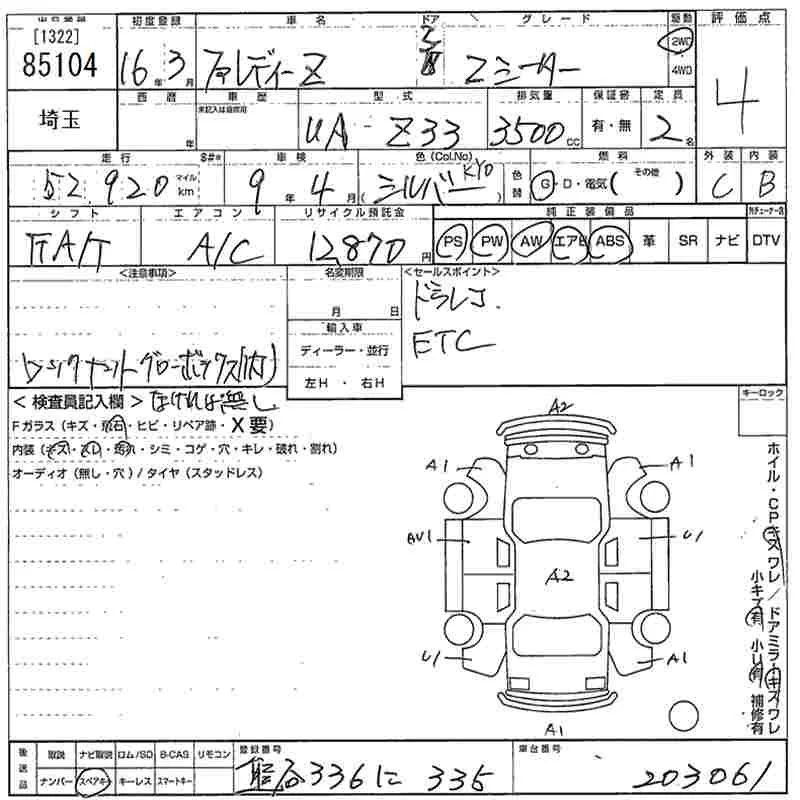 出品番号 初度登録 車名 ドア グレード 駆動 評価点
[1322]
85104 16年3月 フェアレディーZ Zシーター 2WD 4WD 4
埼玉 西暦 年 車歴 未記入は自家用 型式 UA-Z33 排気量 3500cc 保証書 有・無 定員 2名
走行 52,920 マイル km S#* 車検 9年4月 色(Col.No) シルバー KY0 色替 燃料 G・D・電気( その他 ) 外装 C 内装 B
シフト FA/T エアコン A/C リサイクル預託金 12,870円 純正装備品 PS PW AW エアB ABS 革 SR ナビ DTV
<注意事項> 名変期限 月 日 <セールスポイント>
ドラレコ.
輸入車 ETC
ディーラー・並行
左H・右H
ロックナットグローボックス(内)
<検査員記入欄> なければ無し
Fガラス(キズ・飛石・ヒビ・リペア跡・X要)
内装(キズ・スレ・汚れ・シミ・コゲ・穴・キレ・破れ・割れ)
オーディオ(無し・穴)/タイヤ(スタッドレス)
キーロック
A2
A1 A1
BU1 U1
A2
U1 A1
A1
ホイル・CPキズワレ/ドアミラーキズワレ
小キズ有 小U有 補修有
後送品 取説 ナビ取説 ロム/SD B-CAS リモコン
ナンバー スペアキー キーレス スマートキー
登録番号 熊谷336に335
車台番号 203061